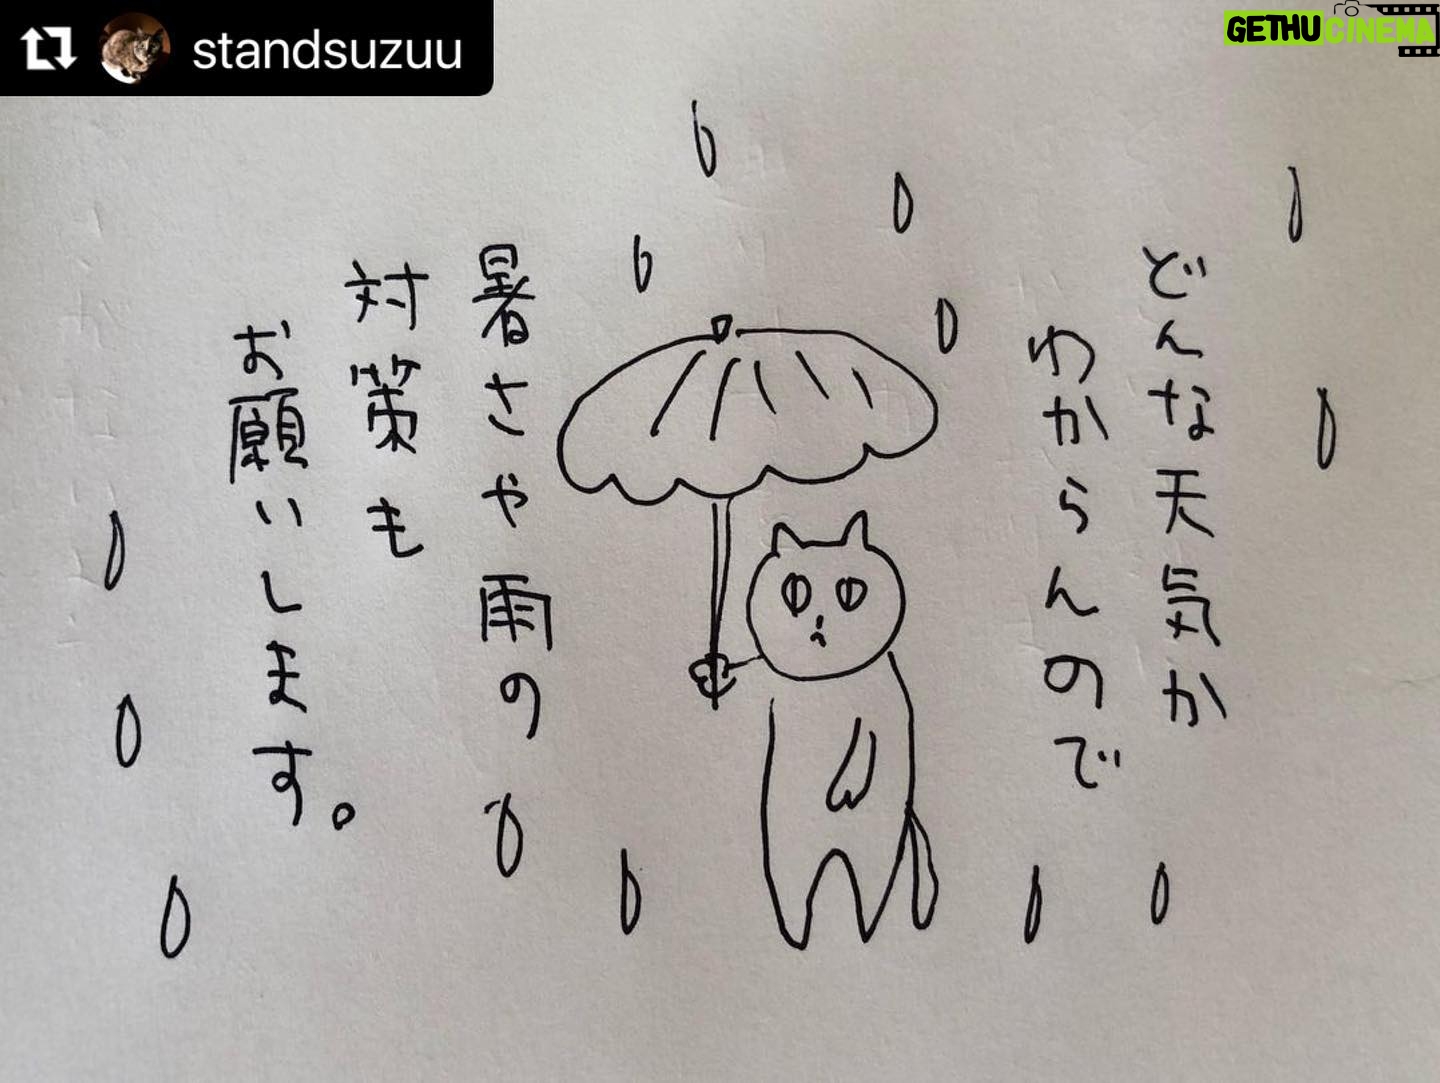 standsuzuu
GETHU CINEMA
どんな天気か
わからんので
暑さや雨の
対策も
お願いします。